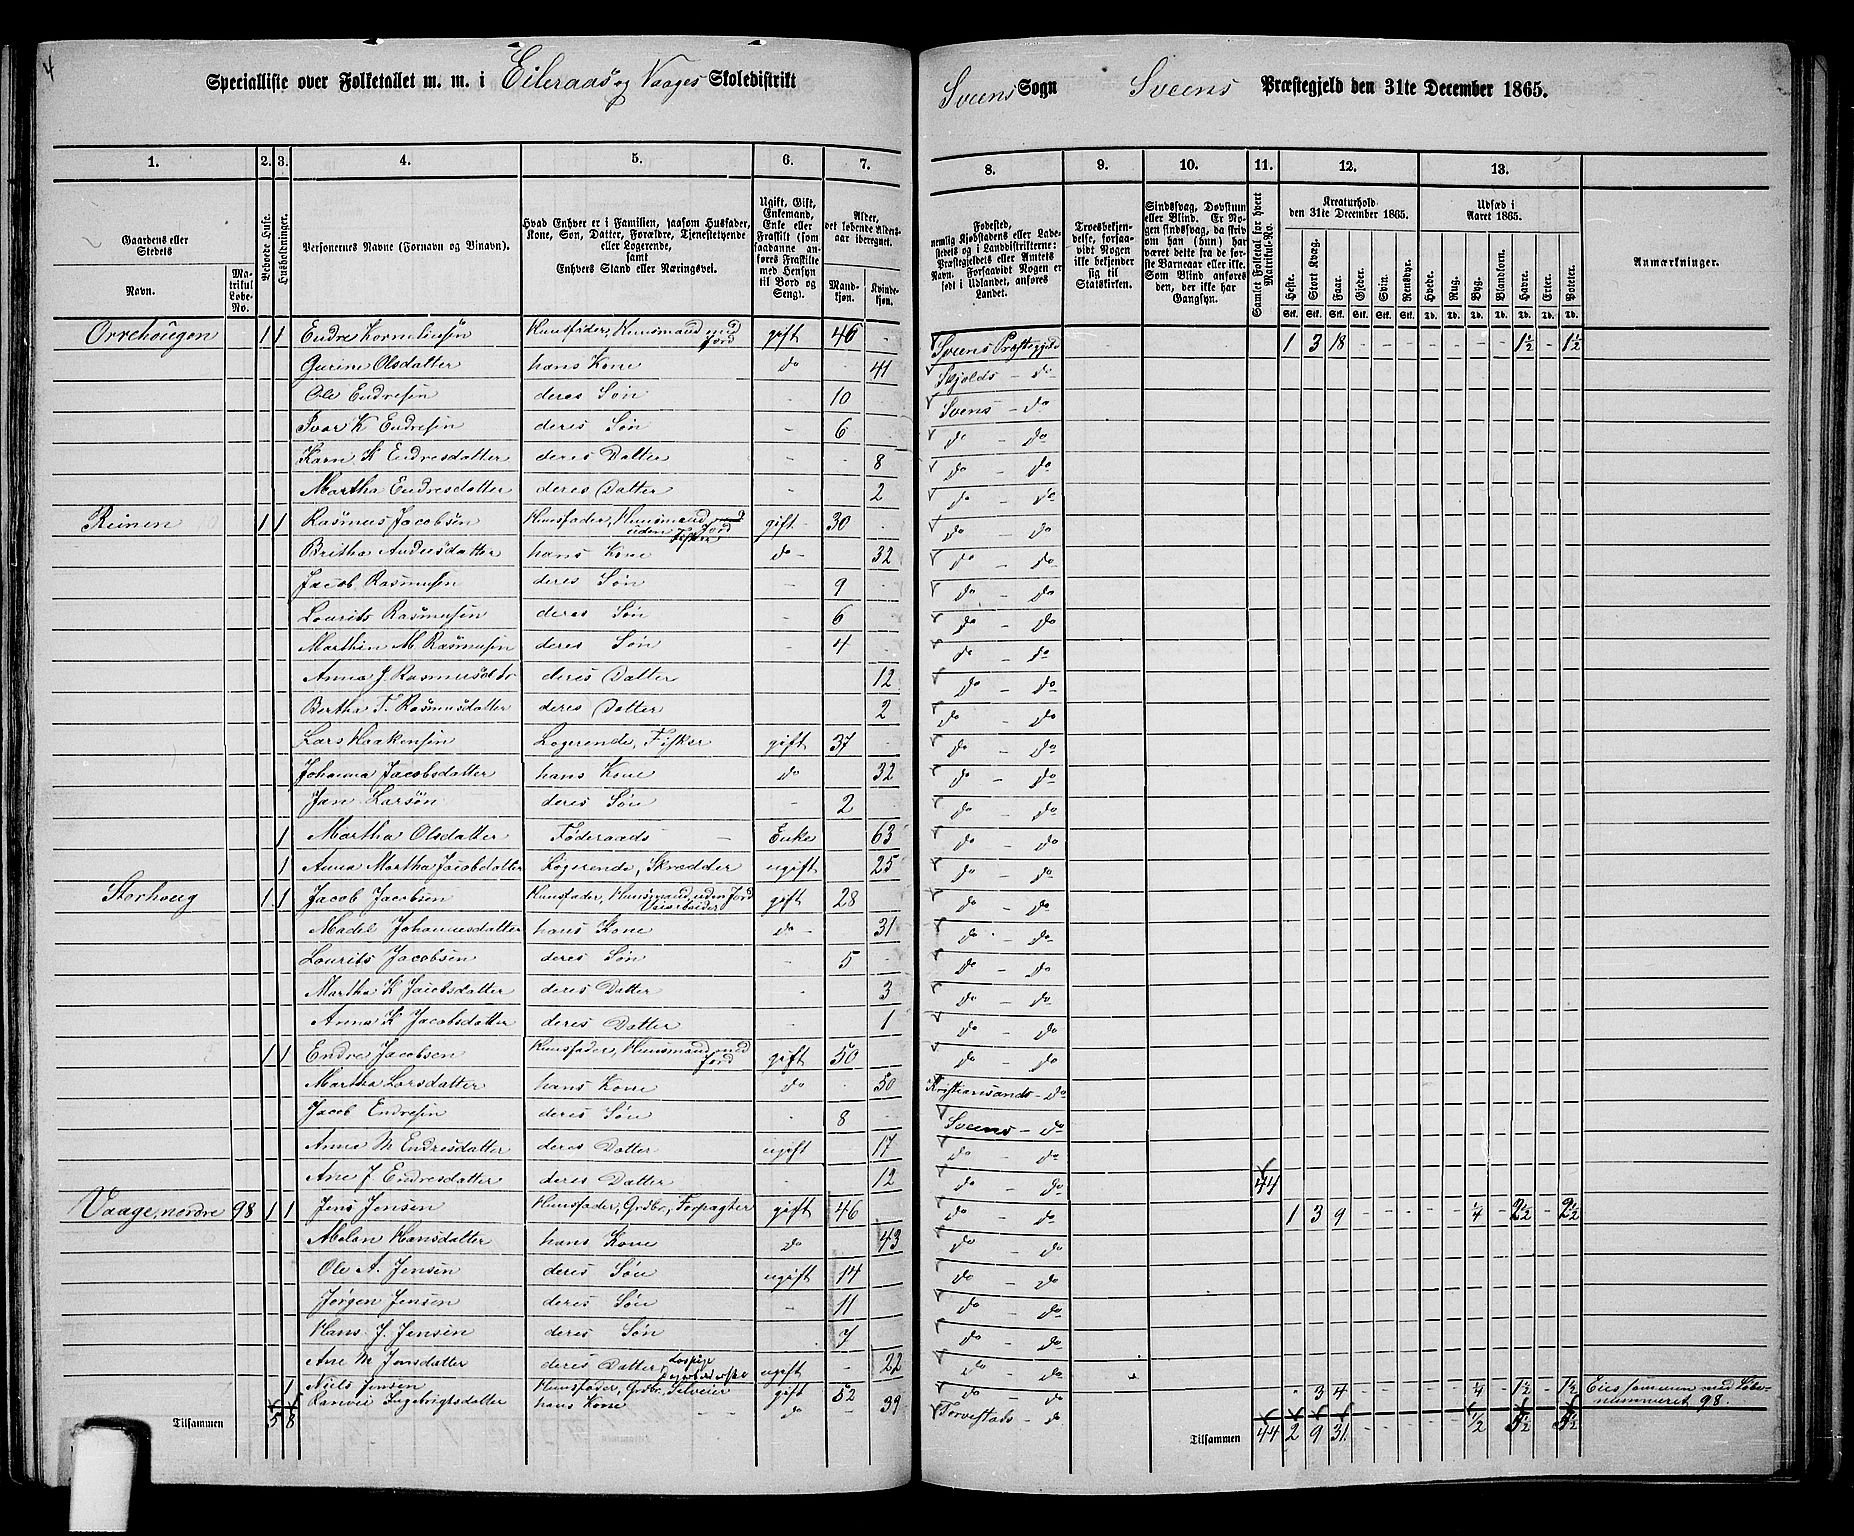 4
Specialliste over Folketallet m. m. i Eileraas og Vaages Skoledistrikt
Sveens Sogn Sveens Præstegjeld den 31te December 1865.
1. 2. 3. 4. 5. 6. 7. 8. 9. 10. 11. 12. 13.
Gaardens eller Stedets
Navn.
Matrikul Løbe-No.
Beboede Huse.
Husholdninger.
Personernes Navne (Fornavn og Binavn).
Hvad Enhver er i Familien, saasom Husfader, Kone, Søn, Datter, Forældre, Tjenestetyende eller Logerende, samt Enhvers Stand eller Næringsvei.
Ugift, Gift, Enkemand, Enke eller Fraskilt (som saadanne anføres Fraskilte med Hensyn til Bord og Seng).
Alder, det løbende Aldersaar iberegnet.
Mandkjøn. Kvindekjøn.
Fødested, nemlig Kjøbstadens eller Ladestedets og i Landdistrikterne: Præstegjeldets eller Amtets Navn. Forsaavidt Nogen er født i Udlandet, anføres Landet.
Troesbekjendelse, forsaavidt Nogen ikke bekjender sig til Statskirken.
Sindssvag, Døvstum eller Blind. Er Nogen sindssvag, da skriv om han (hun) har været dette fra de første Barneaar eller ikke. Som Blind anføres den, der ikke har Gangsyn.
Samlet Folketal for hvert Matrikul-No.
Kreaturhold den 31te December 1865.
Heste. Stort Kvæg. Faar. Gjeder. Svin. Rensdyr.
Udsæd i Aaret 1865.
Hvede. Rug. Byg. Blandkorn. Havre. Erter. Poteter.
Stk. Stk. Stk. Stk. Stk. Stk. Td. Td. Td. Td. Td. Td. Td.
Anmærkninger.
Orrehougen 1 1 Endre Korneliusen Huusfader, Huusmand med Jord gift 46 - Sveens Præstegjeld 1 3 18 - - - - - - - 1½ - 1½
Gurine Olsdatter hans Kone do - 41 Skjolds - do
Ole Endresen deres Søn - 10 Sveens - do
Ivar K Endresen deres Søn - 6 do - do
Karn K Endresdatter deres Datter - - 8 do - do
Martha Endresdatter deres Datter - 2 do - do
Reinen 1 1 Rasmus Jacobsen Huusfader, Huusmand med uden Jord Fisker gift 30 - do - do
Britha Andersdatter hans Kone do - 32 do - do
Jacob Rasmusen deres Søn - 9 do - do
Lourits Rasmusen deres Søn - 6 do - do
Marthin M. Rasmusen deres Søn - 4 do - do
Anna J Rasmusdtr deres Datter 12 do - do
Bertha T. Rasmusdatter deres Datter 2 do - do
Lars Haakensen Logerende, Fisker gift 37 - do - do
Johanna Jacobsdatter hans Kone do 32 do - do
Jan Larsen deres Søn - 2 do - do
1 Martha Olsdatter Føderaads - Enke 63 do - do
1 Anna Martha Jacobdatter Logerende, Skrædder ugift 25 do - do
Storhoug 1 1 Jacob Jacobsen Huusfader, Huusmand uden Jord Veiarbeider gift 28 do - do
Madel Johannesdatter hans Kone do - 31 do - do
Lourits Jacobsen deres Søn - 5 do - do
Martha K Jacobsdatter deres Datter - 3 do - do
Anna K Jacobsdatter deres Datter - 1 do - do
1 1 Endre Jacobsen Huusfader, Huusmand med Jord gift 50 do - do
Martha Larsdatter hans Kone do - 50 Kristiansands - do
Jacob Endresen deres Søn - 8 Sveens - do
Anna M Endresdatter deres Datter ugift 17 do - do
Ane J Endresdatter deres Datter 12 do - do 44
Vaage, nordre 98 1 1 Jens Jensen Huusfader, Grdbr, Forpagter gift 46 do - do 1 3 9 - - - - - ¼ - 2½ - 2½
Malan Hansdatter hans Kone do 43 do - do
Ole A. Jensen deres Søn ugift 14 do - do
Jørgen Jensen deres Søn - 11 do - do
Hans J. Jensen deres Søn 7 do - do
Ane M Jensdatter deres Datter, Løspige ugift - 22 do - do
1 Niels Jensen Huusfader, Grdbr, Selveier gift 52 do - do - 3 4 - - - - - ¼ - 1½ - 1½ Eies sammen med Løbenummeret 98.
Ranvei Ingebrigtsdatter hans Kone do - 39 Torvestads - do
Tilsammen 5 8
Tilsammen 44 2 9 31 - - - - - ½ - 5½ - 5½